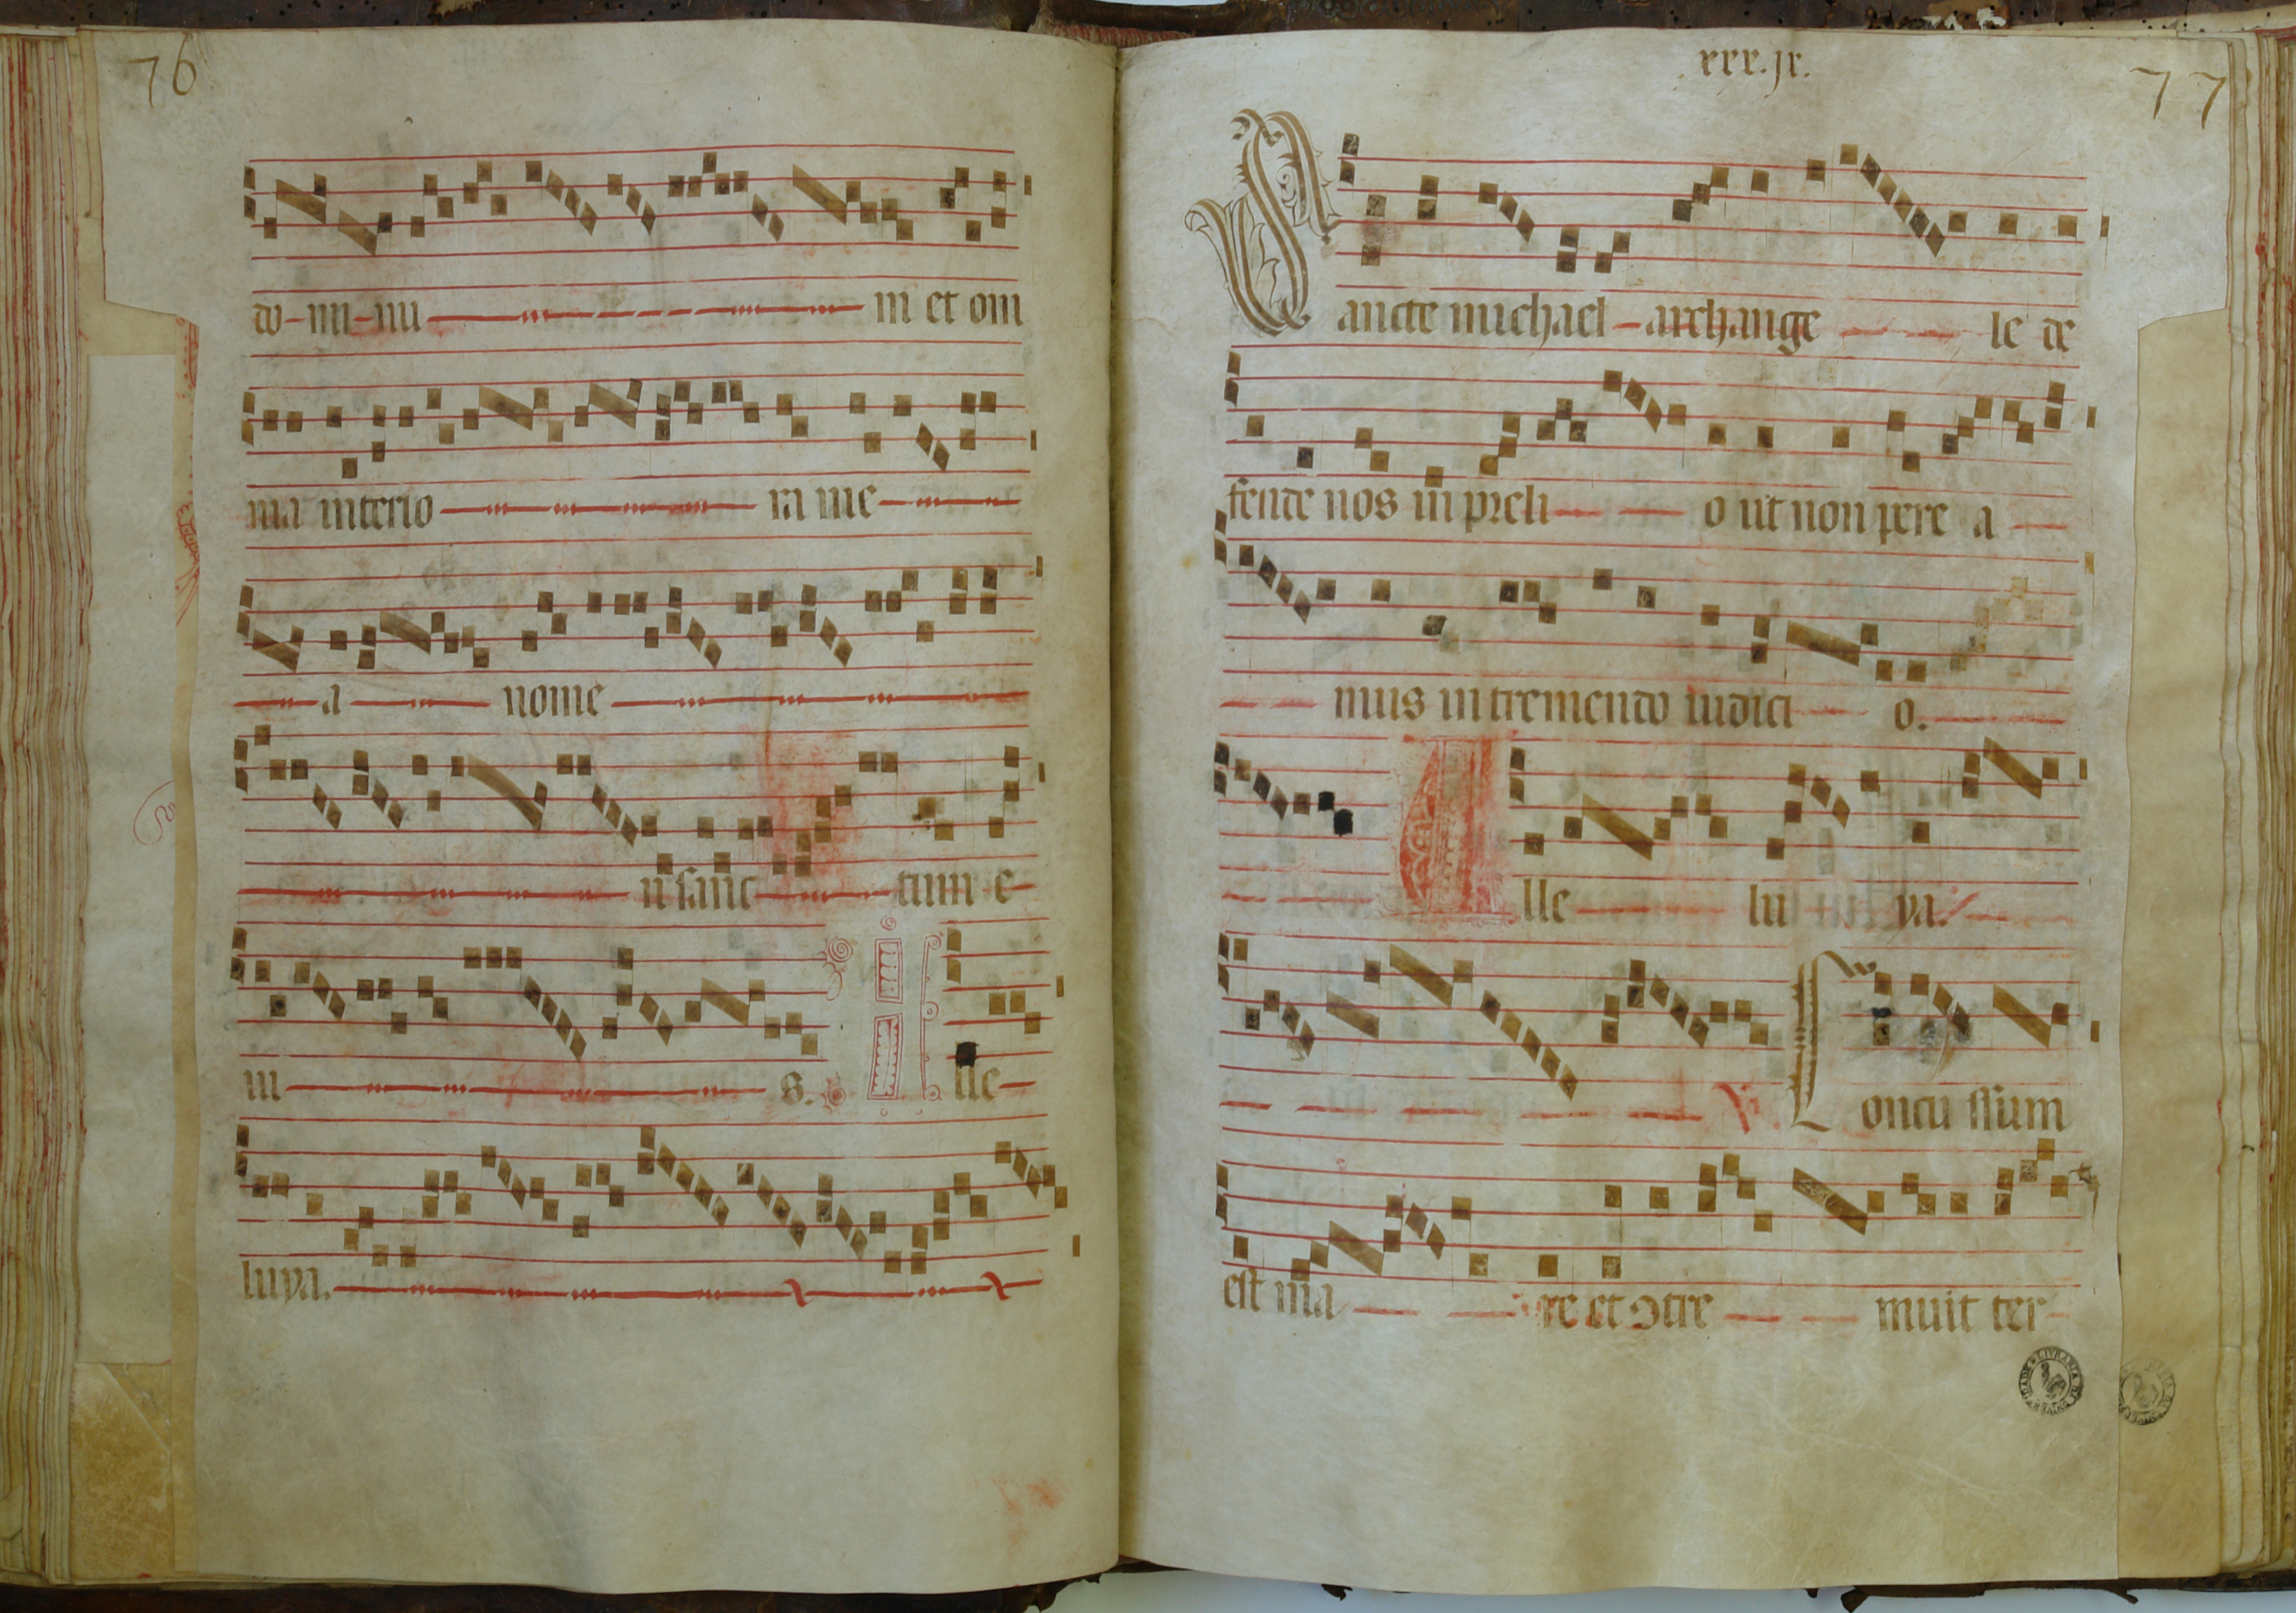 76
do-mi-nu m et om
nia interio ra me
a nome
n sanc tum e
iu s. Alle
luya.
xxx.ix.
77
Sancte michael archange le de
fende nos in preli o ut non pere a
mus in tremendo iudici o.
Alle lu ya.
V. Concussum
est ma re et ɔtre muit ter